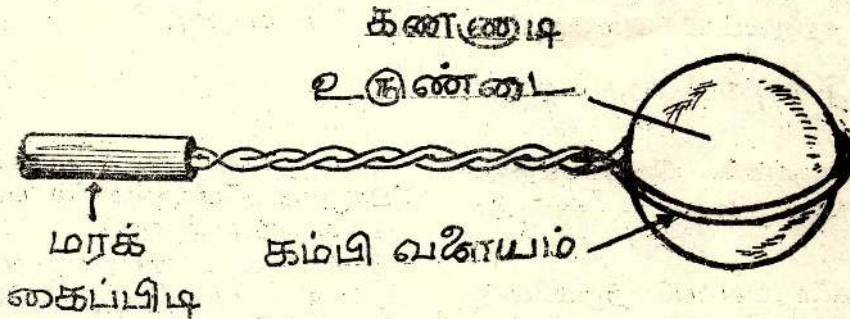 கண்ணாடி
உருண்டை
மரக்
கைப்பிடி
கம்பி வளையம்